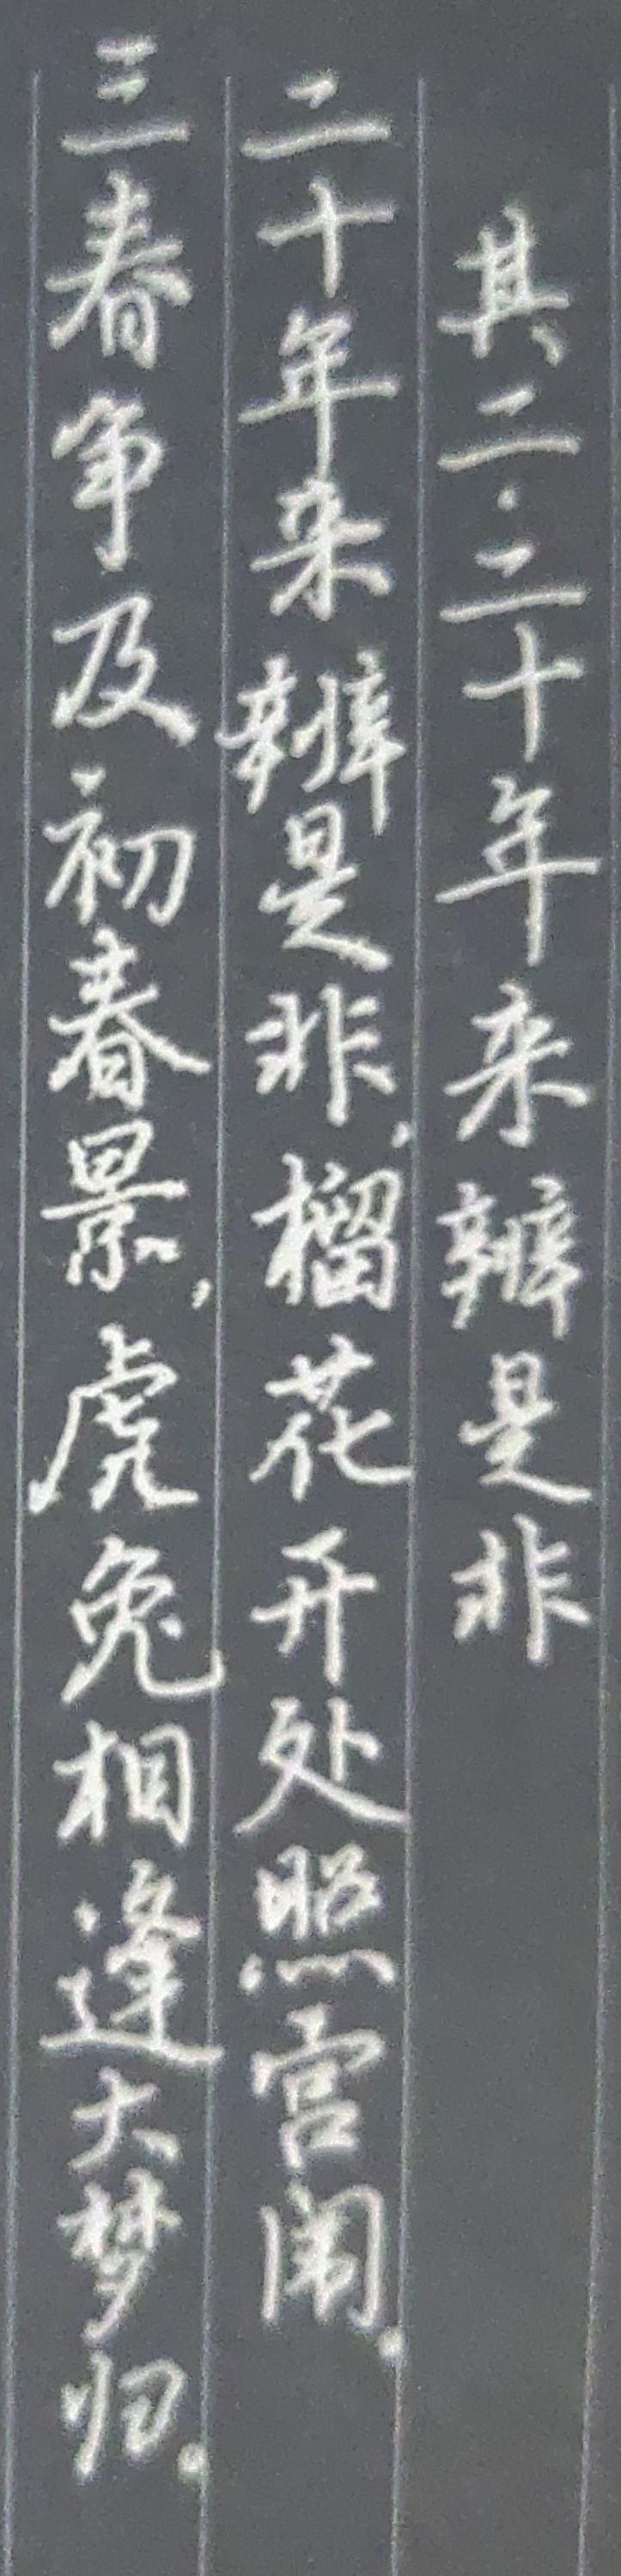 其二·二十年来辨是非
二十年来辨是非，榴花开处照宫闱。
三春争及初春景，虎兔相逢大梦归。